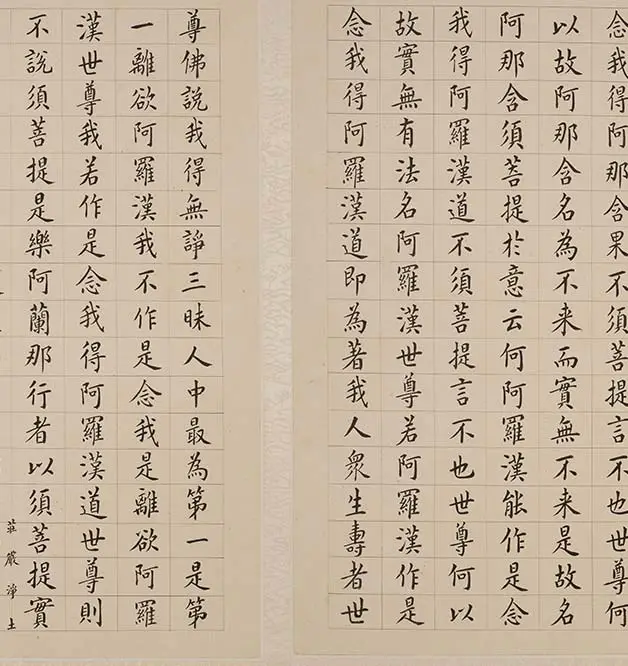 念我得阿那含果不須菩提言不也世尊何
以故阿那含名為不来而實無不来是故名
阿那含須菩提於意云何阿羅漢能作是念
我得阿羅漢道不須菩提言不也世尊何以
故實無有法名阿羅漢世尊若阿羅漢作是
念我得阿羅漢道即為著我人衆生壽者世
尊佛說我得無諍三昧人中最為第一是第
一離欲阿羅漢我不作是念我是離欲阿羅
漢世尊我若作是念我得阿羅漢道世尊則
不說須菩提是樂阿蘭那行者以須菩提實
莊嚴淨土